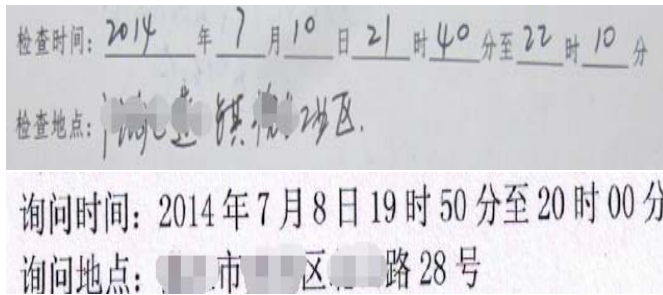 检查时间: 2014 年 7 月 10 日 21 时 40 分至 22 时 10 分
检查地点: 镇 区.
询问时间: 2014年7月8日19时50分至20时00分
询问地点: 市 区 路28号